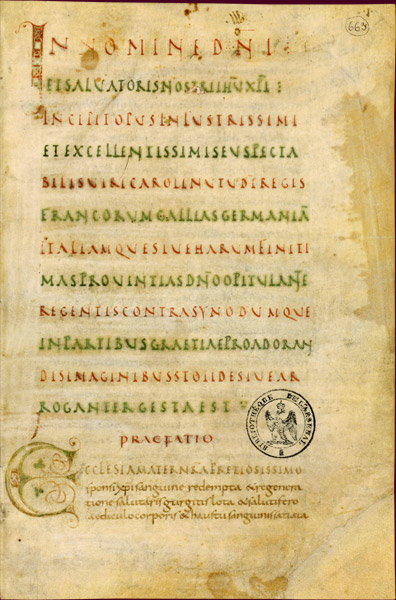 663
IN NOMINE DNI
ET SALVATORIS NOSTRI IHU XPI
INCIPIT OPUS INLUSTRISSIMI
ET EXCELLENTISSIMI SEU SPECTA
BILIS VIRI CAROLI NUTU DI REGIS
FRANCORUM GALLIAS GERMANIA
ITALIAMQUE SIVE HARUM FINITI
MAS PROVINTIAS DNO OPITULANTE
REGENTIS CONTRA SYNODUM QUE
IN PARTIBUS GRAETIAE PRO ADORAN
DIS IMAGINIBUS STOLIDE SIVE AR
ROGANTER GESTA EST
PRAEFATIO
ECCLESIA MATER NRA PRETIOSISSIMO
sponsi xpi sanguine redempta & regenera
tione salutaris gurgitis lota & salutifero
aediculo corporis & haustu sanguinis satiata
BIBLIOTHÈQUE DE L'ARSENAL